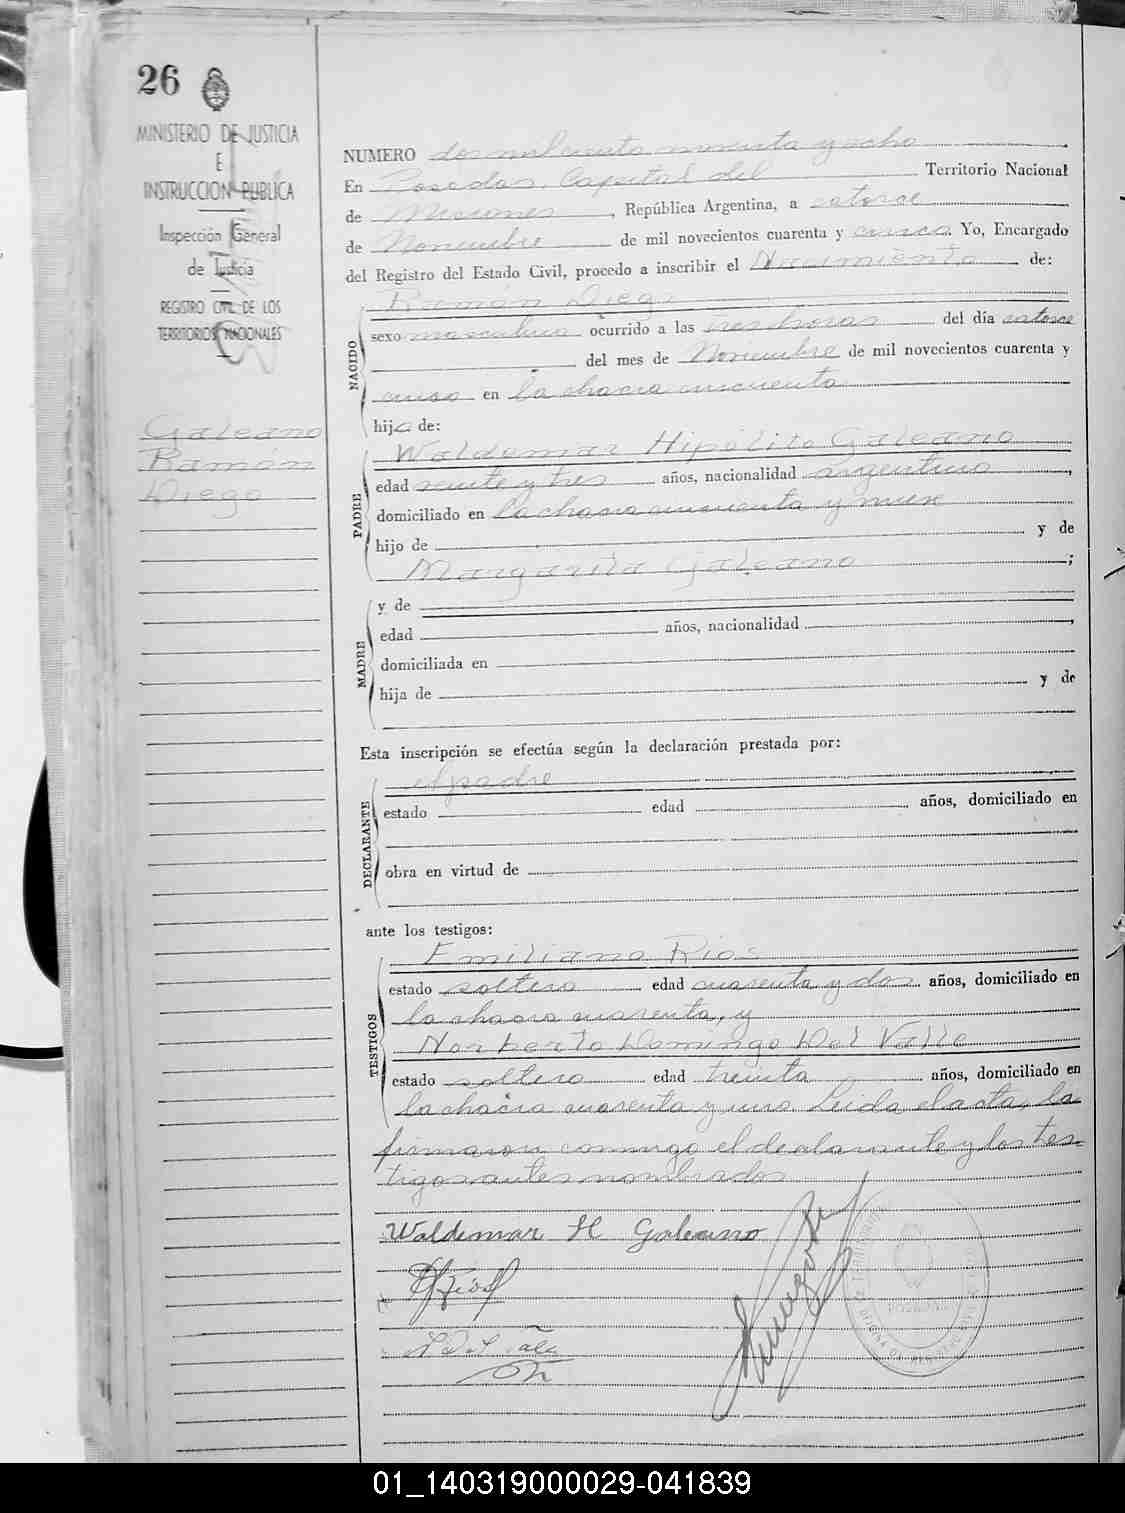 26
MINISTERIO DE JUSTICIA
E
INSTRUCCION PUBLICA
Inspección General
de Justicia
REGISTRO CIVIL DE LOS
TERRITORIOS NACIONALES
Galeano
Ramón
Diego
NUMERO dos mil ciento noventa y ocho
En Posadas, Capital del Territorio Nacional
de Misiones, República Argentina, a catorce
de Noviembre de mil novecientos cuarenta y cinco Yo, Encargado
del Registro del Estado Civil, procedo a inscribir el Nacimiento de:
NACIDO
Ramón Diego
sexo masculino ocurrido a las tres horas del día catorce
del mes de Noviembre de mil novecientos cuarenta y
cinco en la chacra cincuenta
hijo de:
PADRE
Waldemar Hipólito Galeano
edad veinte y tres años, nacionalidad argentino,
domiciliado en la chacra cincuenta y nueve
hijo de y de
Margarita Galeano;
MADRE
y de
edad años, nacionalidad ,
domiciliada en
hija de y de
Esta inscripción se efectúa según la declaración prestada por:
DECLARANTE
el padre
estado edad años, domiciliado en
obra en virtud de
ante los testigos:
TESTIGOS
Emiliano Rios
estado soltero edad cuarenta y dos años, domiciliado en
la chacra cuarenta, y
Norberto Domingo Del Valle
estado soltero edad treinta años, domiciliado en
la chacra cuarenta y uno. Leida el acta, la
firmaron conmigo el declarante y los tes-
tigos antes nombrados
Waldemar H Galeano
Rios
POSADAS
01_140319000029-041839